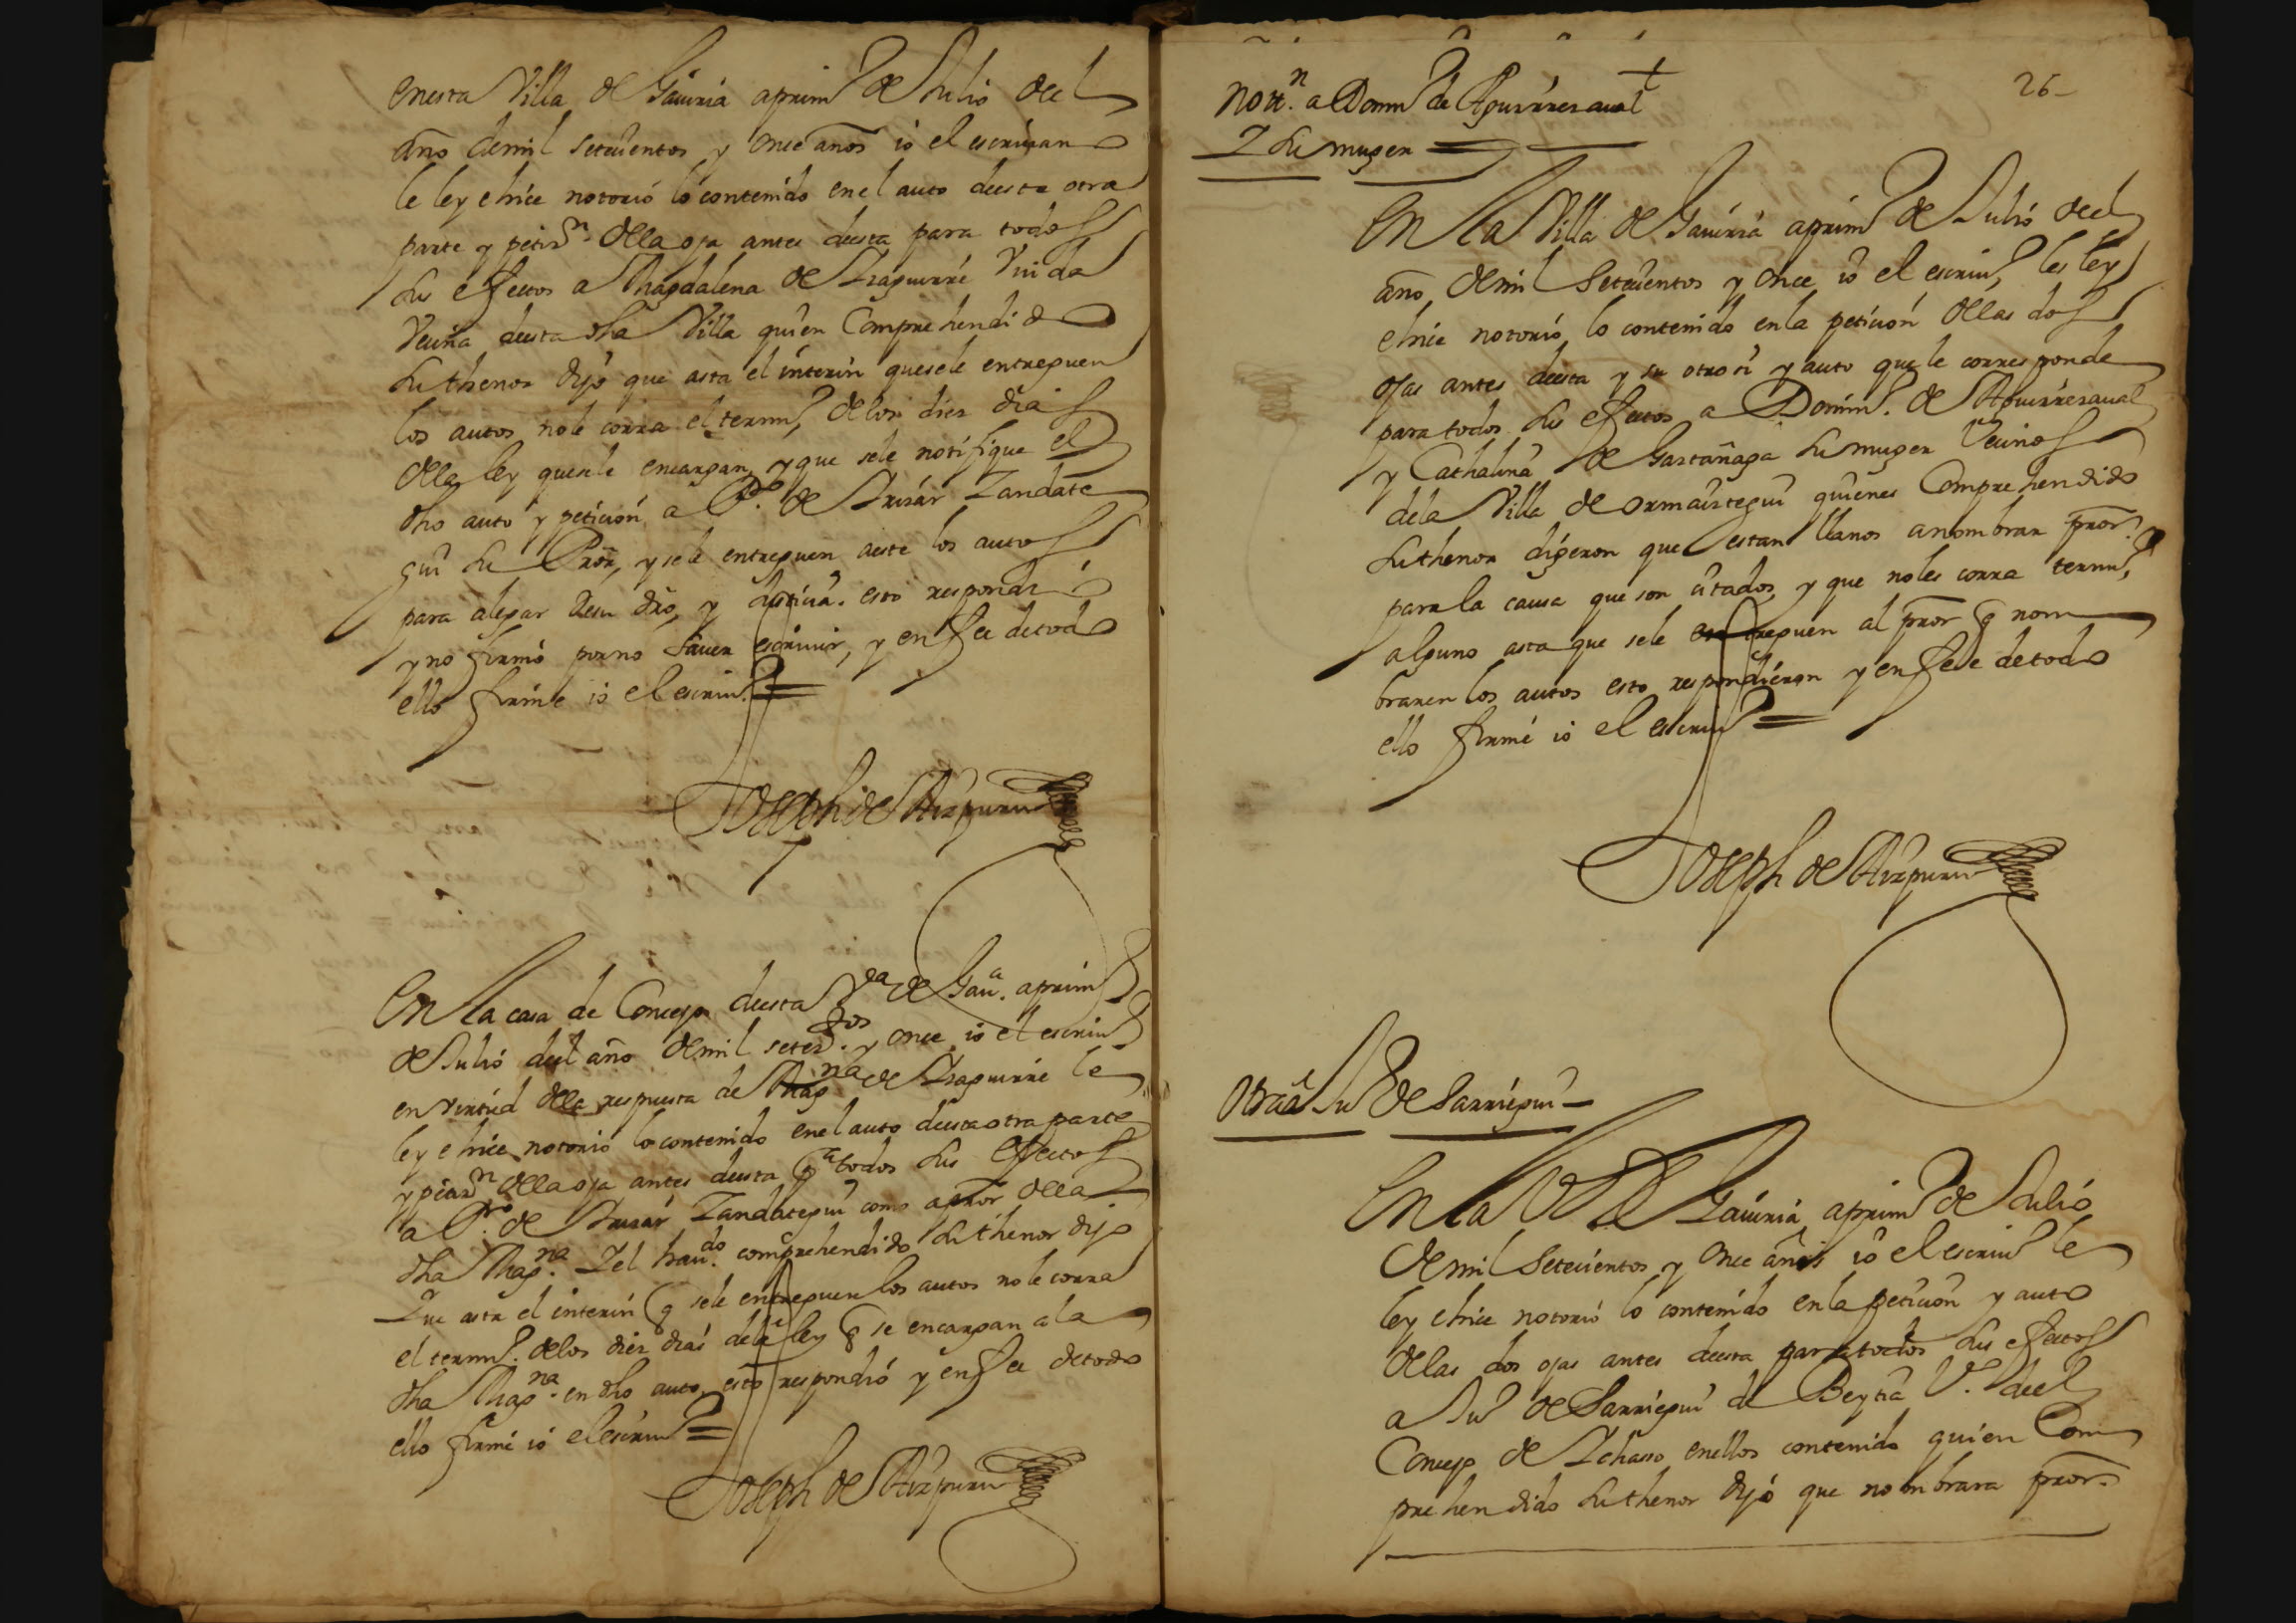 enesta Villa de Gauiria aprim.º de Julio deel
año demil setecientos y once años io el escriuano
le ley e hice notorio lo contenido enel auto deesta otra
parte y petiz.n della oja antes deesta para todos
sus efectos a Magdalena de Yraguirre Viuda
Vecina deesta dha Villa quien Comprehendido
su thenor dijo que asta el interin quesele entreguen
los autos nole corra el termn.º delos diez dias
della ley quesele encargan, y que sele notifique el
dho auto y petición a P.º de Aruar Zandate
gui su Pror, y sele entreguen aeste los autos
para alegar desu dro, y Justicia. esto respondió
y no firmó porno sauer escriuir, y en fee detodo
ello firmé io el escriu.º =
Joseph de Aizpuru
En la casa de Concejo deesta V.a de Gau.a aprim.º
de Julio deel año demil setez.os y once io el escriu.º
en virtud della respuesta de Mag.na de Yraguirre le
ley e hice notorio lo contenido enel auto deesta otra parte
y petiz.n della oja antes deesta p.a todos sus efectos
a P.ro de Aruar Zandategui como apror della
dha Mag.na Y el hau.do comprehendido su thenor dijo
Que asta el interin q sele entreguen los autos nole corra
el termn.º delos diez dias dela ley q se encargan ala
dha Mag.na en dho auto, esto respondió y en fee detodo
ello firmé io el escriu.º =
Joseph de Aizpuru
26-
Nott.n a Domn.º de Aguirrezaual
Y su muger =
En la Villa de Gauiria aprim.º de Julio deel
año demil Setecientos y once io el escriu.º les ley
e hice notorio lo contenido enla petición dellas dos
ojas antes deesta y su otrosi y auto que le corresponde
para todos sus efectos a Domin.º de Aguirrezaual
y Cathalina de Gastañaga su muger Vecinos
dela Villa de ormaiztegui quienes Comprehendido
su thenor digeron que estan llanos anombrar pror.
para la causa que son citados, y que noles corra termn.º
alguno asta que sele entreguen al pror q nom
braren los autos esto respondieron y en feee detodo
ello firmé io el escriu.º =
Joseph de Aizpuru
Otra a Ju.º de Sarriegui
En la V.a de Gauiria aprim.º de Julio
demil Setecientos y once años io el escriu.º le
ley e hice notorio lo contenido enla petición y auto
dellas dos ojas antes deesta para todos sus efectos
a Ju.º de Sarriegui de Beytia V.º deel
Concejo de Ychasso enellos contenido quien Com
prehendido su thenor dijó que nombrara pror.